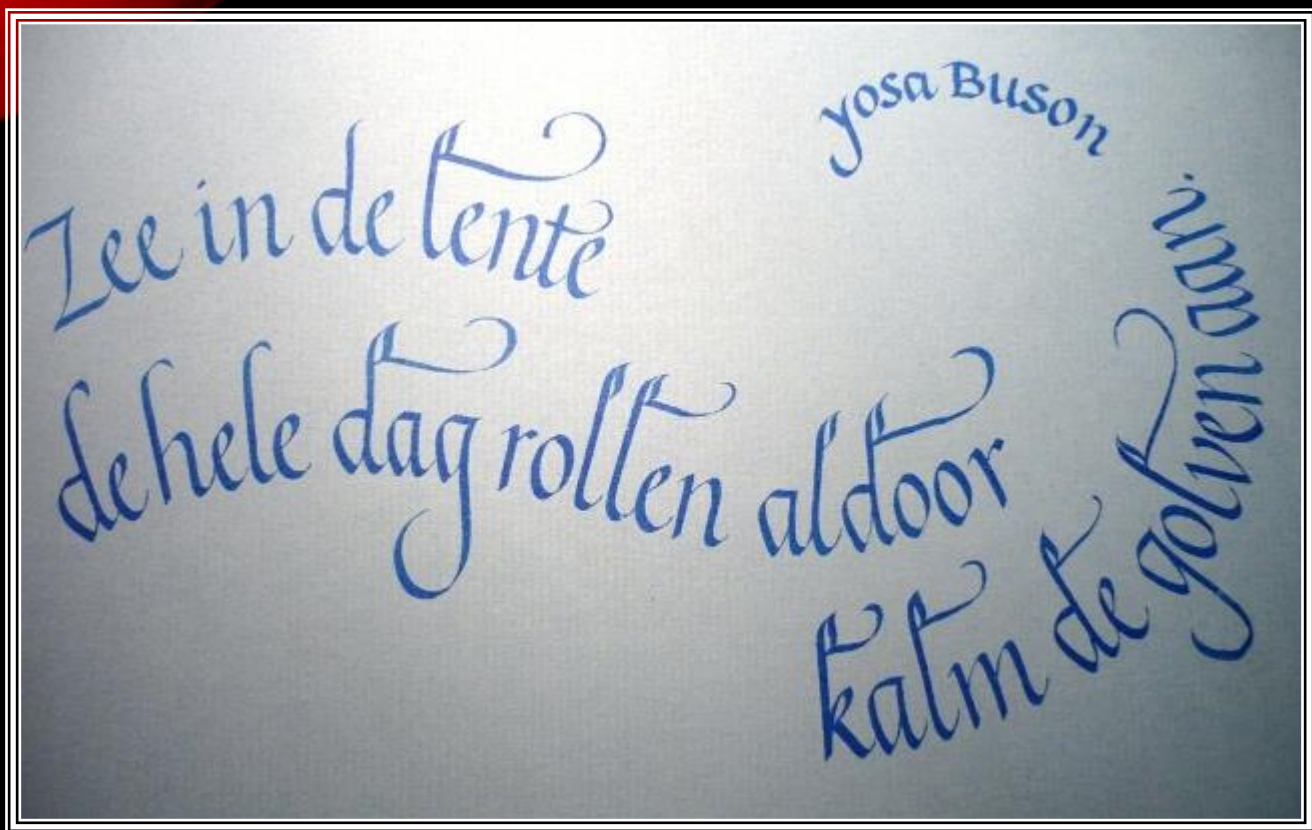 Zee in de lente
de hele dag rollen aldoor
kalm de golven aan.
yosa Buson